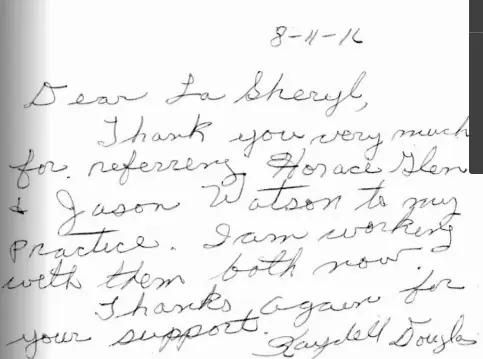 8-11-16
Dear La Sheryl,
Thank you very much
for referreng Horace Glen
& Jason Watson to my
practice. I am working
with them both now.
Thanks again for
your support.
Raydell Douglas